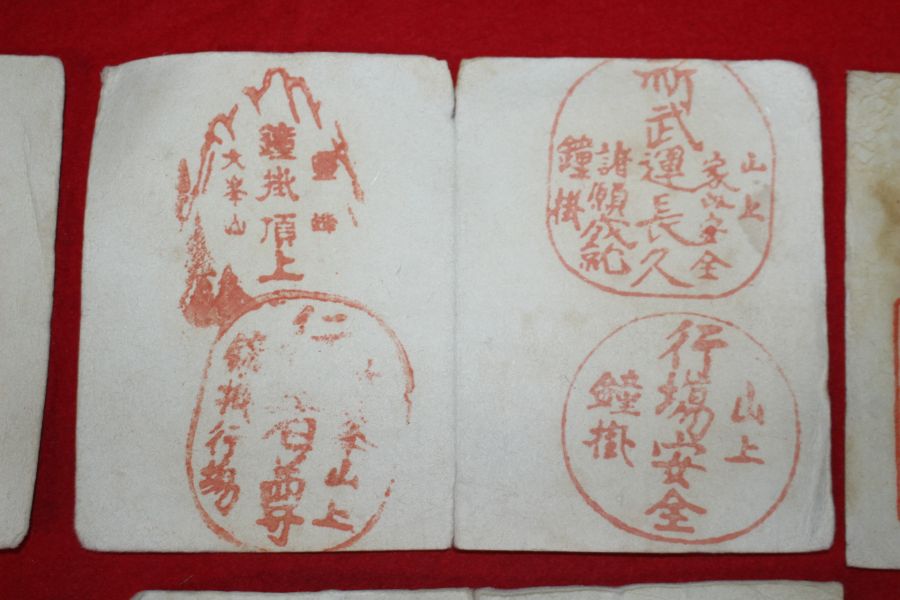 山上
家内安全
祈武運長久
諸願成就
鐘掛
山上
行場安全
鐘掛
鐘掛頂上
大峯山
峯山上
鐘掛行場